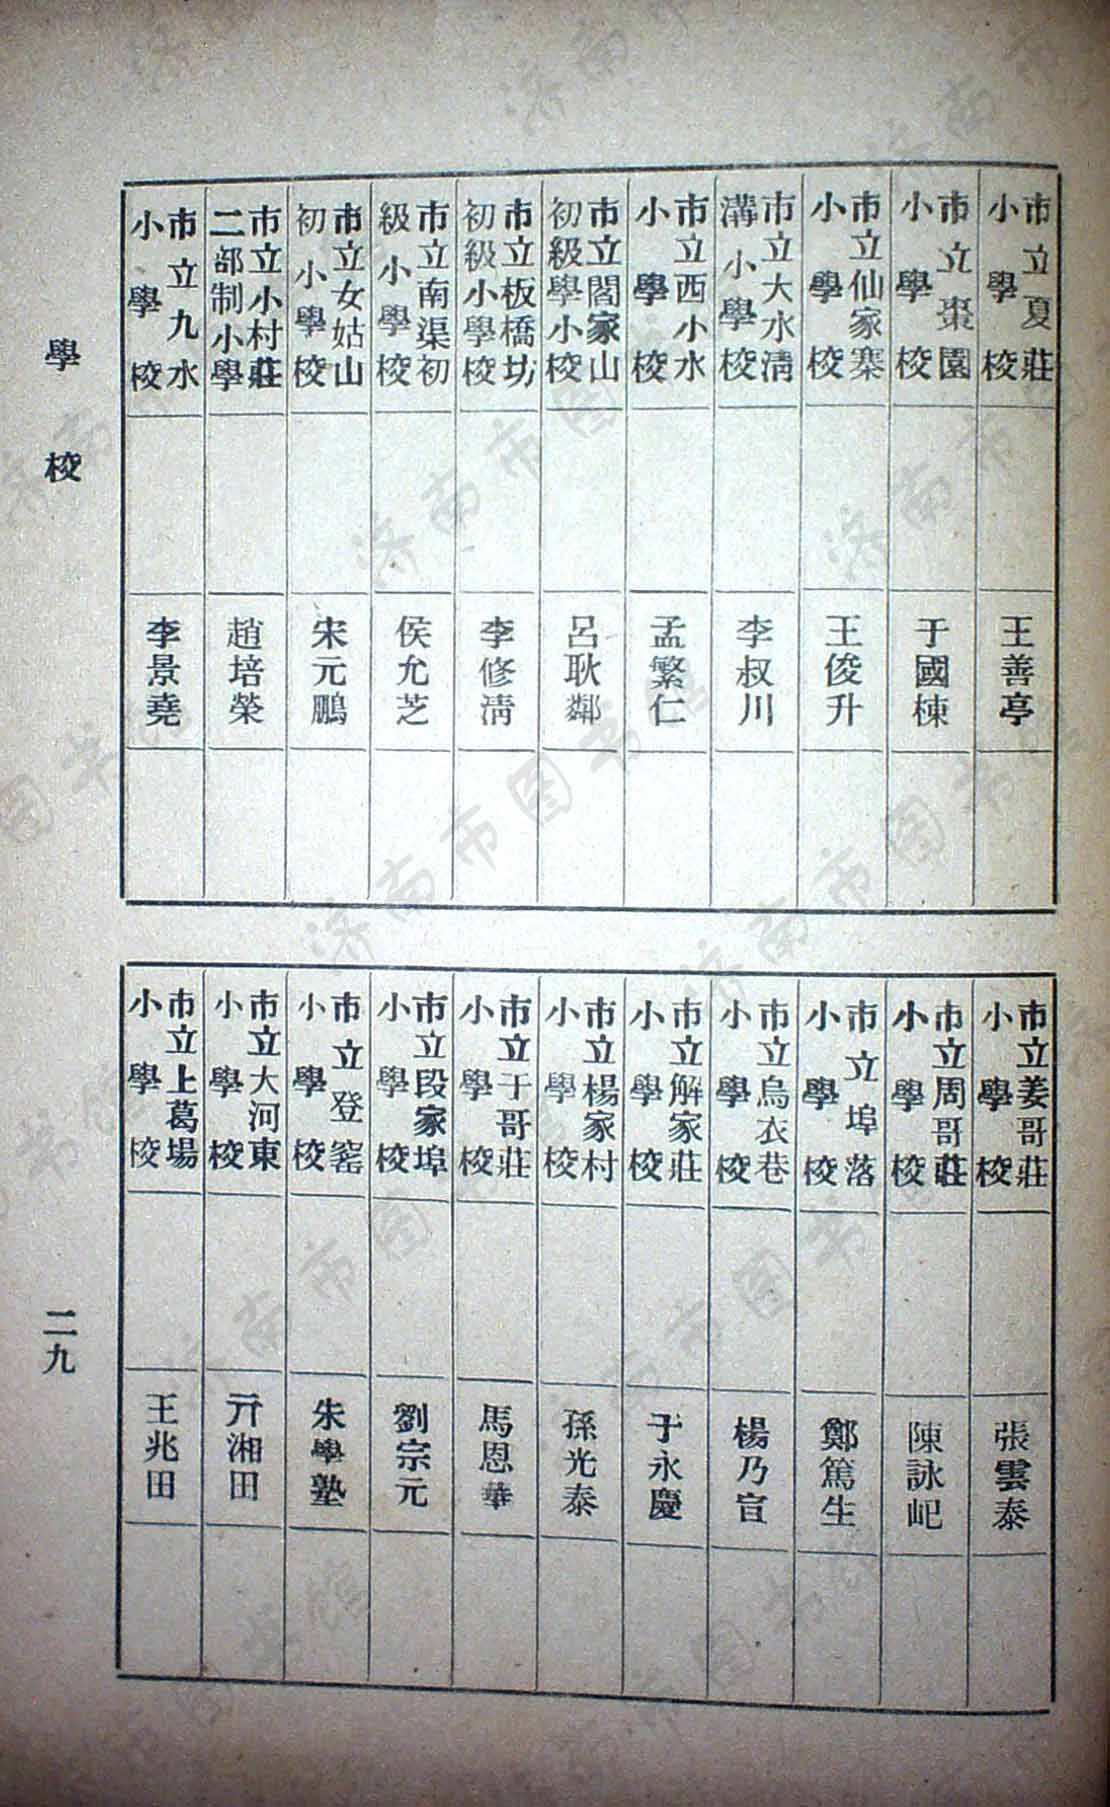 市立夏莊
小學校
王善亭
市立棗園
小學校
于國棟
市立仙家寨
小學校
王俊升
市立大水清
溝小學校
李叔川
市立西小水
小學校
孟繁仁
市立閻家山
初級學小校
呂耿鄰
市立板橋坊
初級小學校
李修清
市立南渠初
級小學校
侯允芝
市立女姑山
初小學校
宋元鵬
市立小村莊
二部制小學
趙培榮
市立九水
小學校
李景堯
市立姜哥莊
小學校
張雲泰
市立周哥莊
小學校
陳詠屺
市立埠落
小學校
鄭篤生
市立烏衣巷
小學校
楊乃宣
市立解家莊
小學校
于永慶
市立楊家村
小學校
孫光泰
市立于哥莊
小學校
馬恩華
市立段家埠
小學校
劉宗元
市立登窰
小學校
朱學塾
市立大河東
小學校
亓湘田
市立上葛場
小學校
王兆田
學校
二九
济南市图书馆